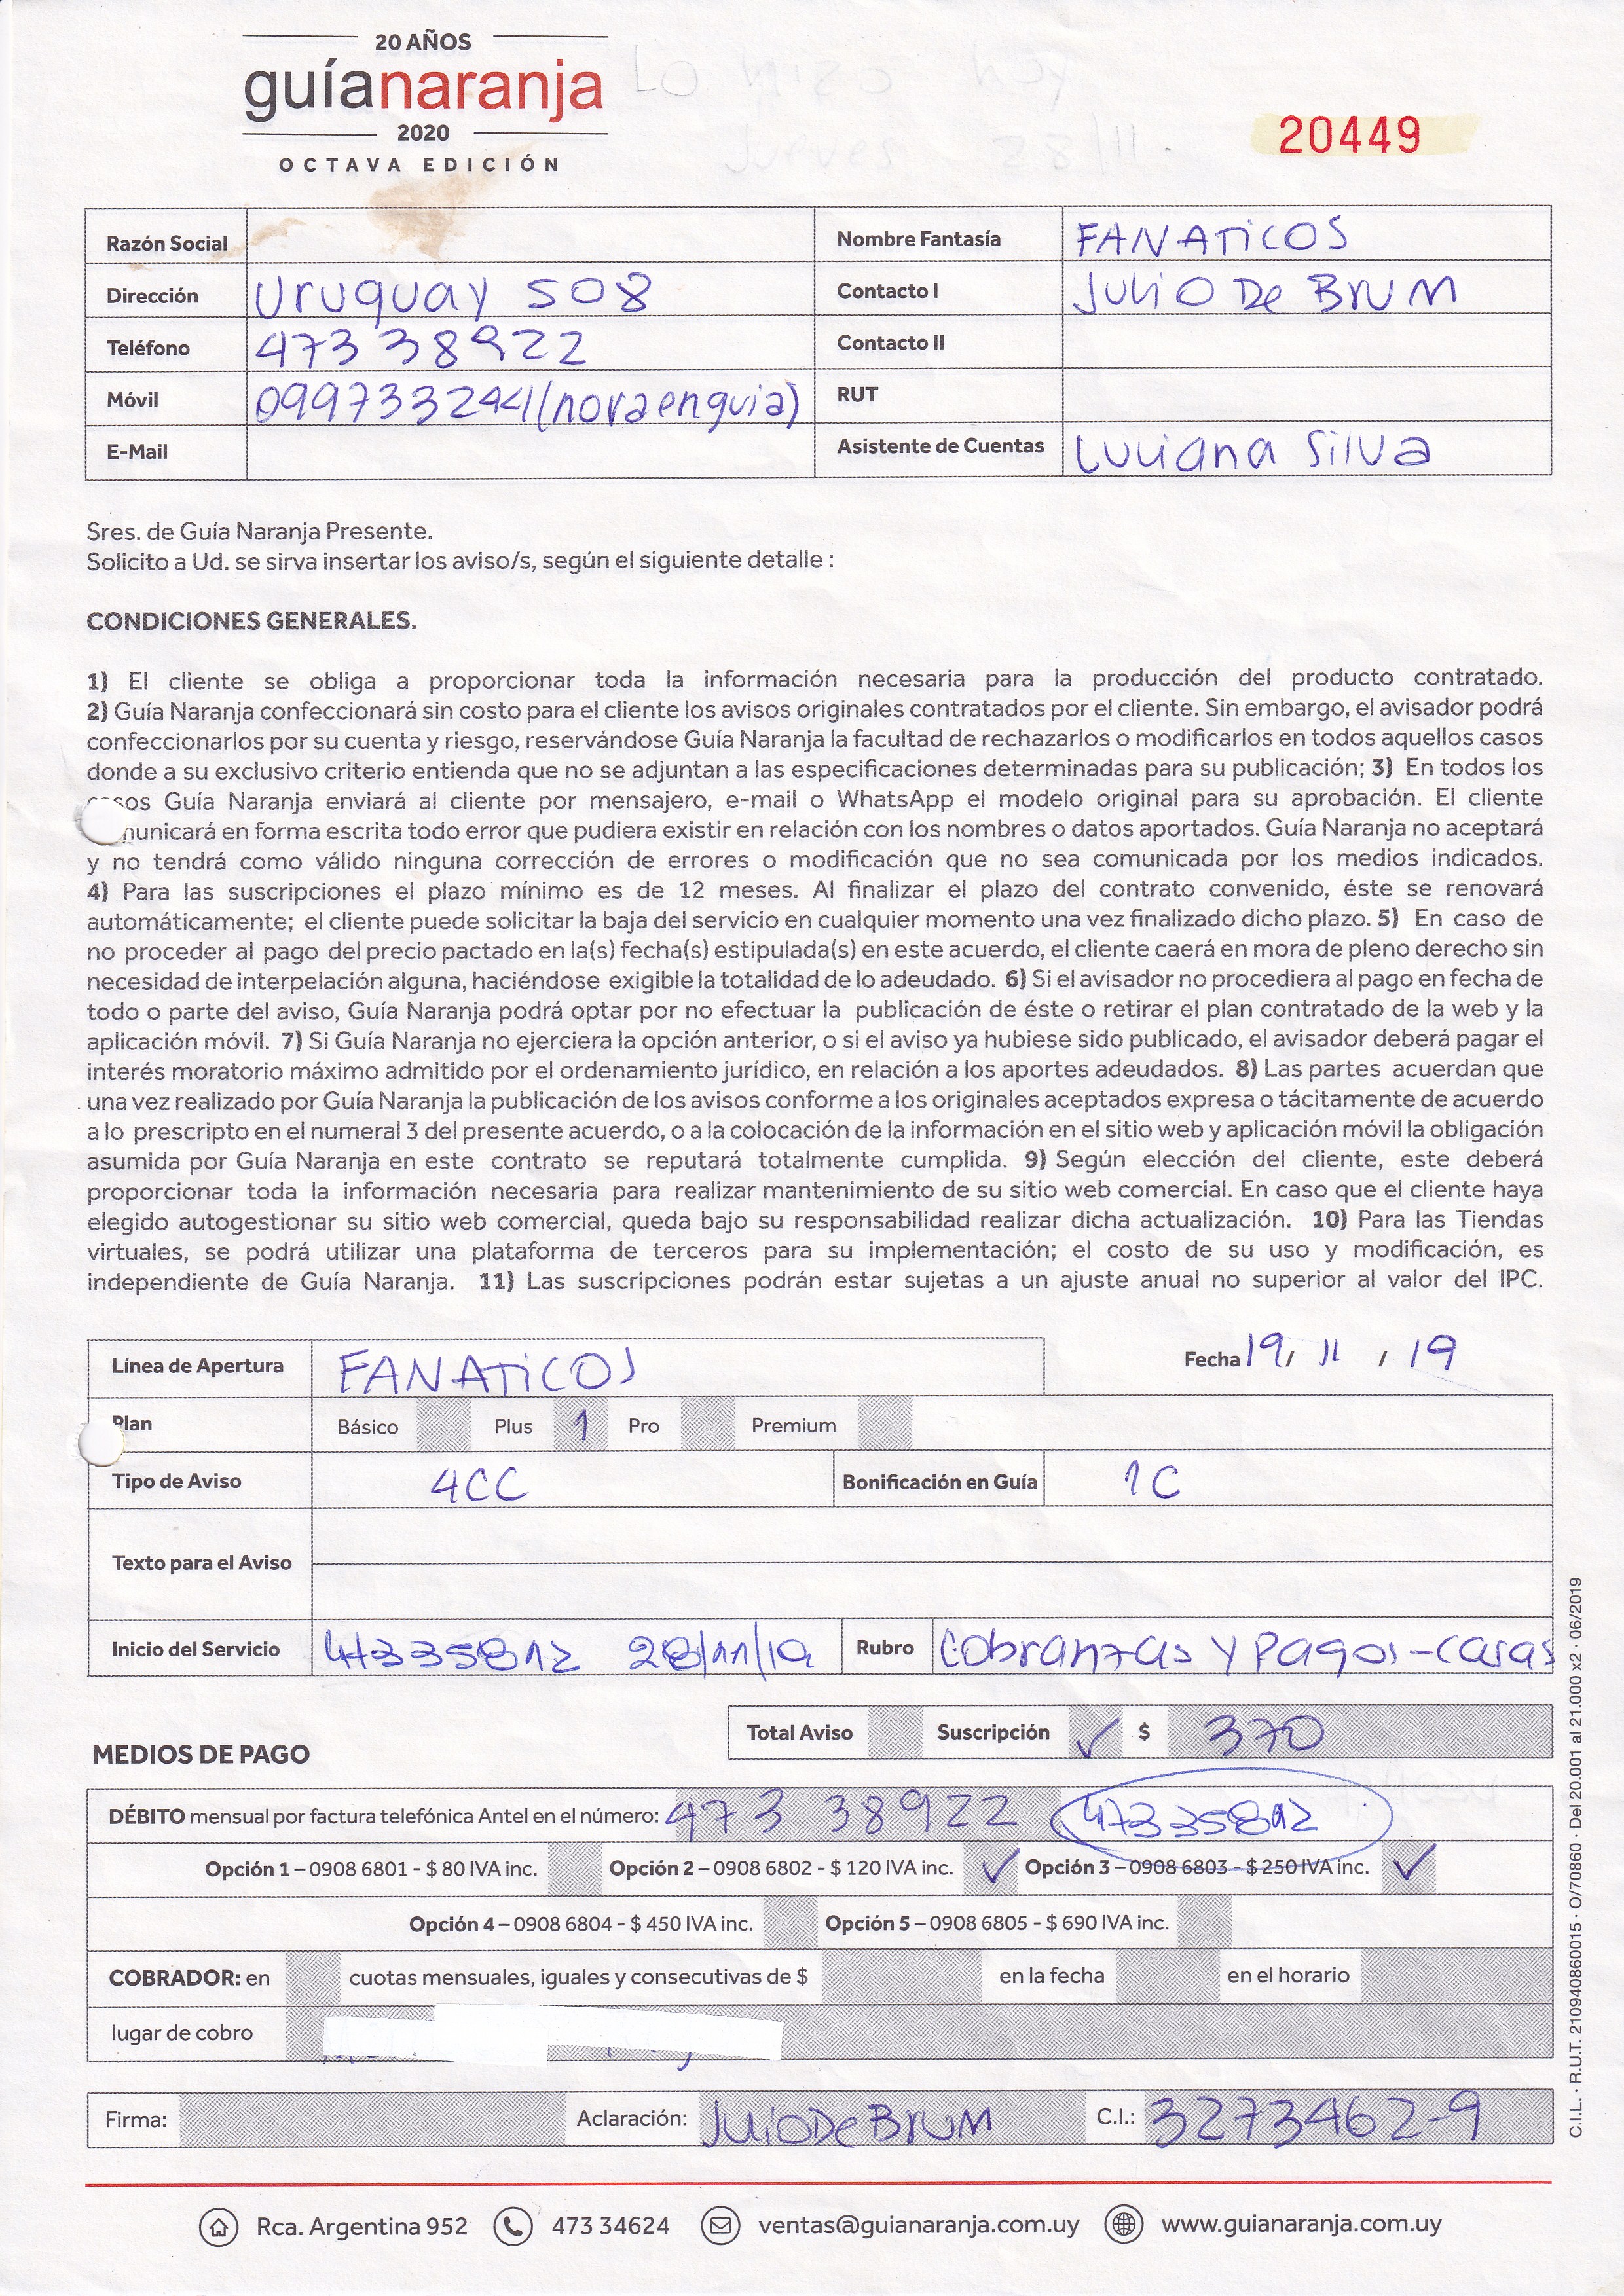 20 AÑOS
guíanaranja
2020
OCTAVA EDICIÓN
LO
Jueves 28/11.
20449
Razón Social
Nombre Fantasía FANATiCOS
Dirección Uruguay 508
Contacto I JULIO De BRUM
Teléfono 473 38922
Contacto II
Móvil 099733244(no va en guia)
RUT
E-Mail
Asistente de Cuentas Luciana Silva
Sres. de Guía Naranja Presente.
Solicito a Ud. se sirva insertar los aviso/s, según el siguiente detalle :
CONDICIONES GENERALES.
1) El cliente se obliga a proporcionar toda la información necesaria para la producción del producto contratado.
2) Guía Naranja confeccionará sin costo para el cliente los avisos originales contratados por el cliente. Sin embargo, el avisador podrá
confeccionarlos por su cuenta y riesgo, reservándose Guía Naranja la facultad de rechazarlos o modificarlos en todos aquellos casos
donde a su exclusivo criterio entienda que no se adjuntan a las especificaciones determinadas para su publicación; 3) En todos los
casos Guía Naranja enviará al cliente por mensajero, e-mail o WhatsApp el modelo original para su aprobación. El cliente
municará en forma escrita todo error que pudiera existir en relación con los nombres o datos aportados. Guía Naranja no aceptará
y no tendrá como válido ninguna corrección de errores o modificación que no sea comunicada por los medios indicados.
4) Para las suscripciones el plazo mínimo es de 12 meses. Al finalizar el plazo del contrato convenido, éste se renovará
automáticamente; el cliente puede solicitar la baja del servicio en cualquier momento una vez finalizado dicho plazo. 5) En caso de
no proceder al pago del precio pactado en la(s) fecha(s) estipulada(s) en este acuerdo, el cliente caerá en mora de pleno derecho sin
necesidad de interpelación alguna, haciéndose exigible la totalidad de lo adeudado. 6) Si el avisador no procediera al pago en fecha de
todo o parte del aviso, Guía Naranja podrá optar por no efectuar la publicación de éste o retirar el plan contratado de la web y la
aplicación móvil. 7) Si Guía Naranja no ejerciera la opción anterior, o si el aviso ya hubiese sido publicado, el avisador deberá pagar el
interés moratorio máximo admitido por el ordenamiento jurídico, en relación a los aportes adeudados. 8) Las partes acuerdan que
una vez realizado por Guía Naranja la publicación de los avisos conforme a los originales aceptados expresa o tácitamente de acuerdo
a lo prescripto en el numeral 3 del presente acuerdo, o a la colocación de la información en el sitio web y aplicación móvil la obligación
asumida por Guía Naranja en este contrato se reputará totalmente cumplida. 9) Según elección del cliente, este deberá
proporcionar toda la información necesaria para realizar mantenimiento de su sitio web comercial. En caso que el cliente haya
elegido autogestionar su sitio web comercial, queda bajo su responsabilidad realizar dicha actualización. 10) Para las Tiendas
virtuales, se podrá utilizar una plataforma de terceros para su implementación; el costo de su uso y modificación, es
independiente de Guía Naranja. 11) Las suscripciones podrán estar sujetas a un ajuste anual no superior al valor del IPC.
Línea de Apertura FANATiCOS
Fecha 19/ 11 / 19
Plan Básico Plus 1 Pro Premium
Tipo de Aviso 4CC Bonificación en Guía 1C
Texto para el Aviso
Inicio del Servicio 47335812 28/11/19 Rubro Cobranzas y Pagos-casas
Total Aviso Suscripción ✓ $ 370
MEDIOS DE PAGO
DÉBITO mensual por factura telefónica Antel en el número: 473 38922 47335812
Opción 1 – 0908 6801 - $ 80 IVA inc. Opción 2 – 0908 6802 - $ 120 IVA inc. ✓ Opción 3 – 0908 6803 - $ 250 IVA inc. ✓
Opción 4 – 0908 6804 - $ 450 IVA inc. Opción 5 – 0908 6805 - $ 690 IVA inc.
COBRADOR: en cuotas mensuales, iguales y consecutivas de $ en la fecha en el horario
lugar de cobro
Firma: Aclaración: JULIO De BRUM C.I.: 3273462-9
C.I.L. · R.U.T. 210940860015 · O/70860 · Del 20.001 al 21.000 x2 · 06/2019
Rca. Argentina 952 473 34624 ventas@guianaranja.com.uy www.guianaranja.com.uy